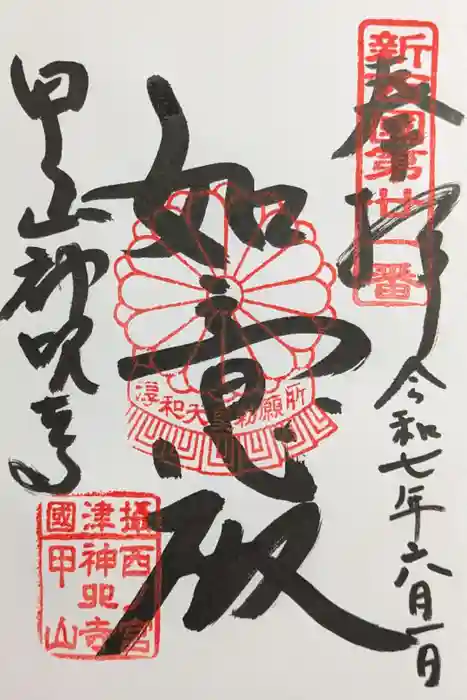 新西國第廿一番
奉拝
令和七年六月一日
如意殿
淳和天皇勅願所
甲山神呪寺
攝津國
西宮
神呪寺
甲山